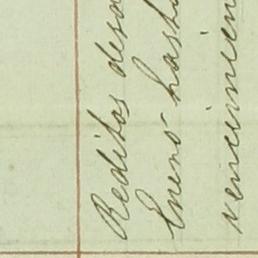 Reditos desd
Enero hasta
vencimien